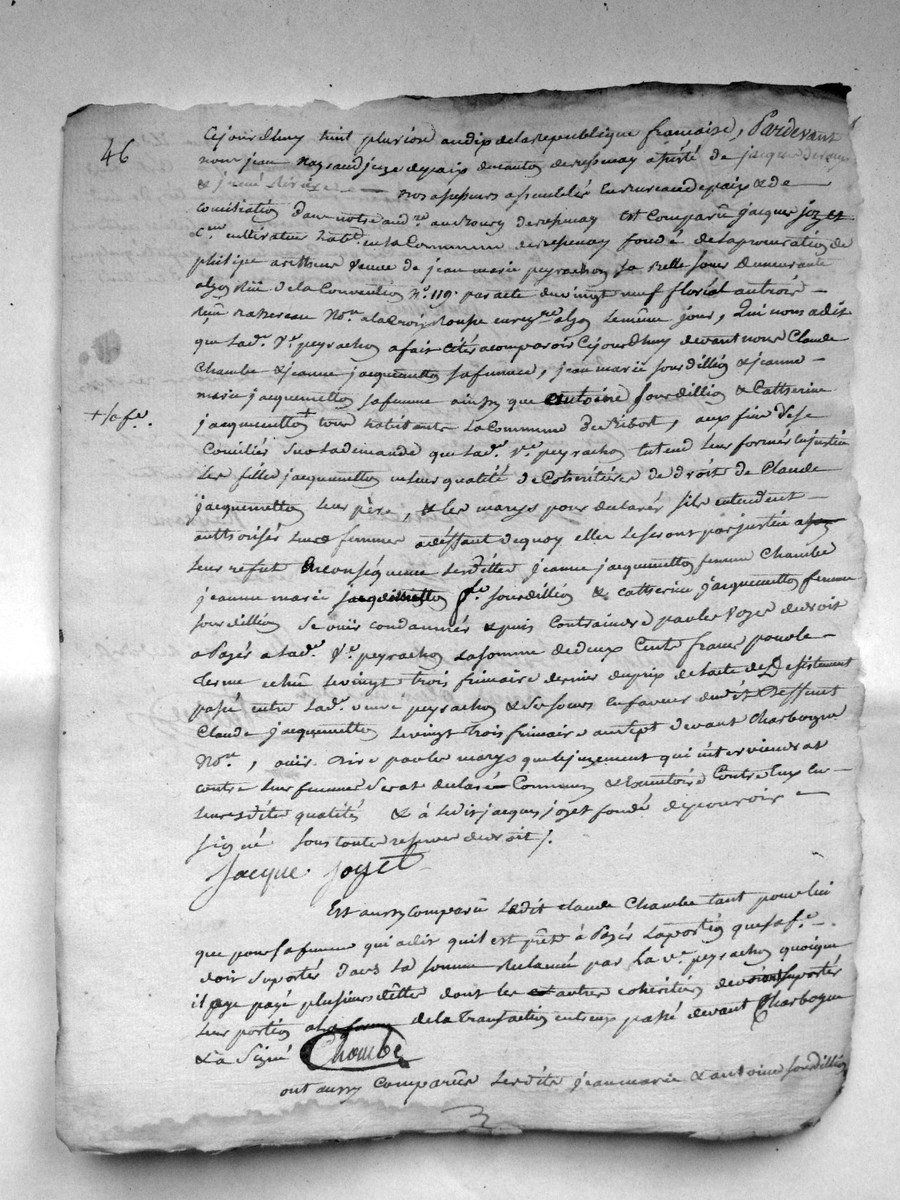 46
Cejourdhuy huit pluviose an dix de la Republique francaise, Pardevant
nous jean juge de paix du canton de assisté de jacques
& nos assesseurs assemblés en bureau de paix & de
conciliation dans notre aud.re au bourg de est comparu jacques joyet
cultivateur habt. en la Commune de fondé de la procuration de
philipe veuve de jean marie peyrachon sa belle sœur demeurante
a lyon Rüe de la Convention N.o 119. par acte du vingt neuf floréal an trois
Reçu Not.re a la Croix Rousse enreg.tré a lyon le même jour, Qui nous a dit
que lad.e V.e peyrachon a fait citér a comparoir Cejourdhuy devant nous Claude
Chambe & jeanne jacquemetton sa femme, jean marie sourdillion & jeanne
marie jacquemetton sa femme ainsy que antoine sourdillion & Catherine
jacquemetton + tous habitants la commune de , aux fins de se
+ sa fe.
Concilier sur la demande que lad.e V.e peyrachon entend leur former en justice
Les filles jacquemetton en leur qualité de Cohéritières de droit de Claude
jacquemetton leur père, & les marys pour declarér s'ils entendent
authoriser leurs femmes a deffaut de quoy elles le seront par justice
leur refus En conséquence lesdittes jeanne jacquemetton femme Chambe
jeanne marie fe. sourdillion & catherine jacquemetton femme
sourdillion Se voir condamnés & puis contraindre par les voyes de droit
a Payér a lad.e V.e peyrachon la somme de deux Cents francs pour le
terme echu le vingt trois frimaire dernier du prix de l'acte de Desistement
passé entre lad.e veuve peyrachon & ses sœurs en faveur dudit Deffunt
Claude jacquemetton le vingt trois frimaire an sept devant Charbogne
No.re, ouir dire par les marys que le jugement qui interviendrat
contre leurs femmes serat declaré Commun & Exécutoire Contre Eux en
leursdites qualités & a ledit jacques joyet fondé de pouvoir
signé sous toute reserve de droit /.
Jacque joyet
Est aussy comparu Ledit claude Chambe tant pour lui
que pour sa femme qui a dit quil est prêt à Payér la portion que sa fe.
doit suportér dans la somme Reclamée par la v.e peyrachon quoique
il aye payé plusieurs dettes dont les autres cohéritiers devoient suportér
leur portion de la Transaction entreux passé devant Charbogne
& a Signé Chambe
ont aussy comparûs lesdits jean marie & antoine sourdillion